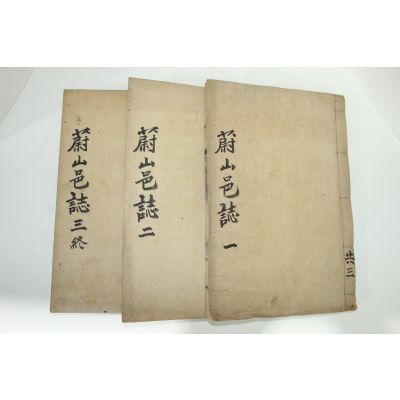 蔚山邑誌 一
共三
蔚山邑誌 二
蔚山邑誌 三 終